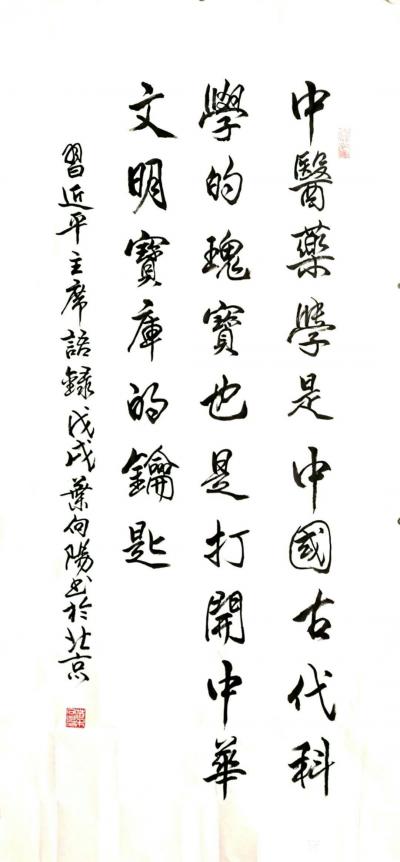 中醫藥學是中國古代科
學的瑰寶也是打開中華
文明寶庫的鑰匙
習近平主席語錄戊戌葉向陽书於北京